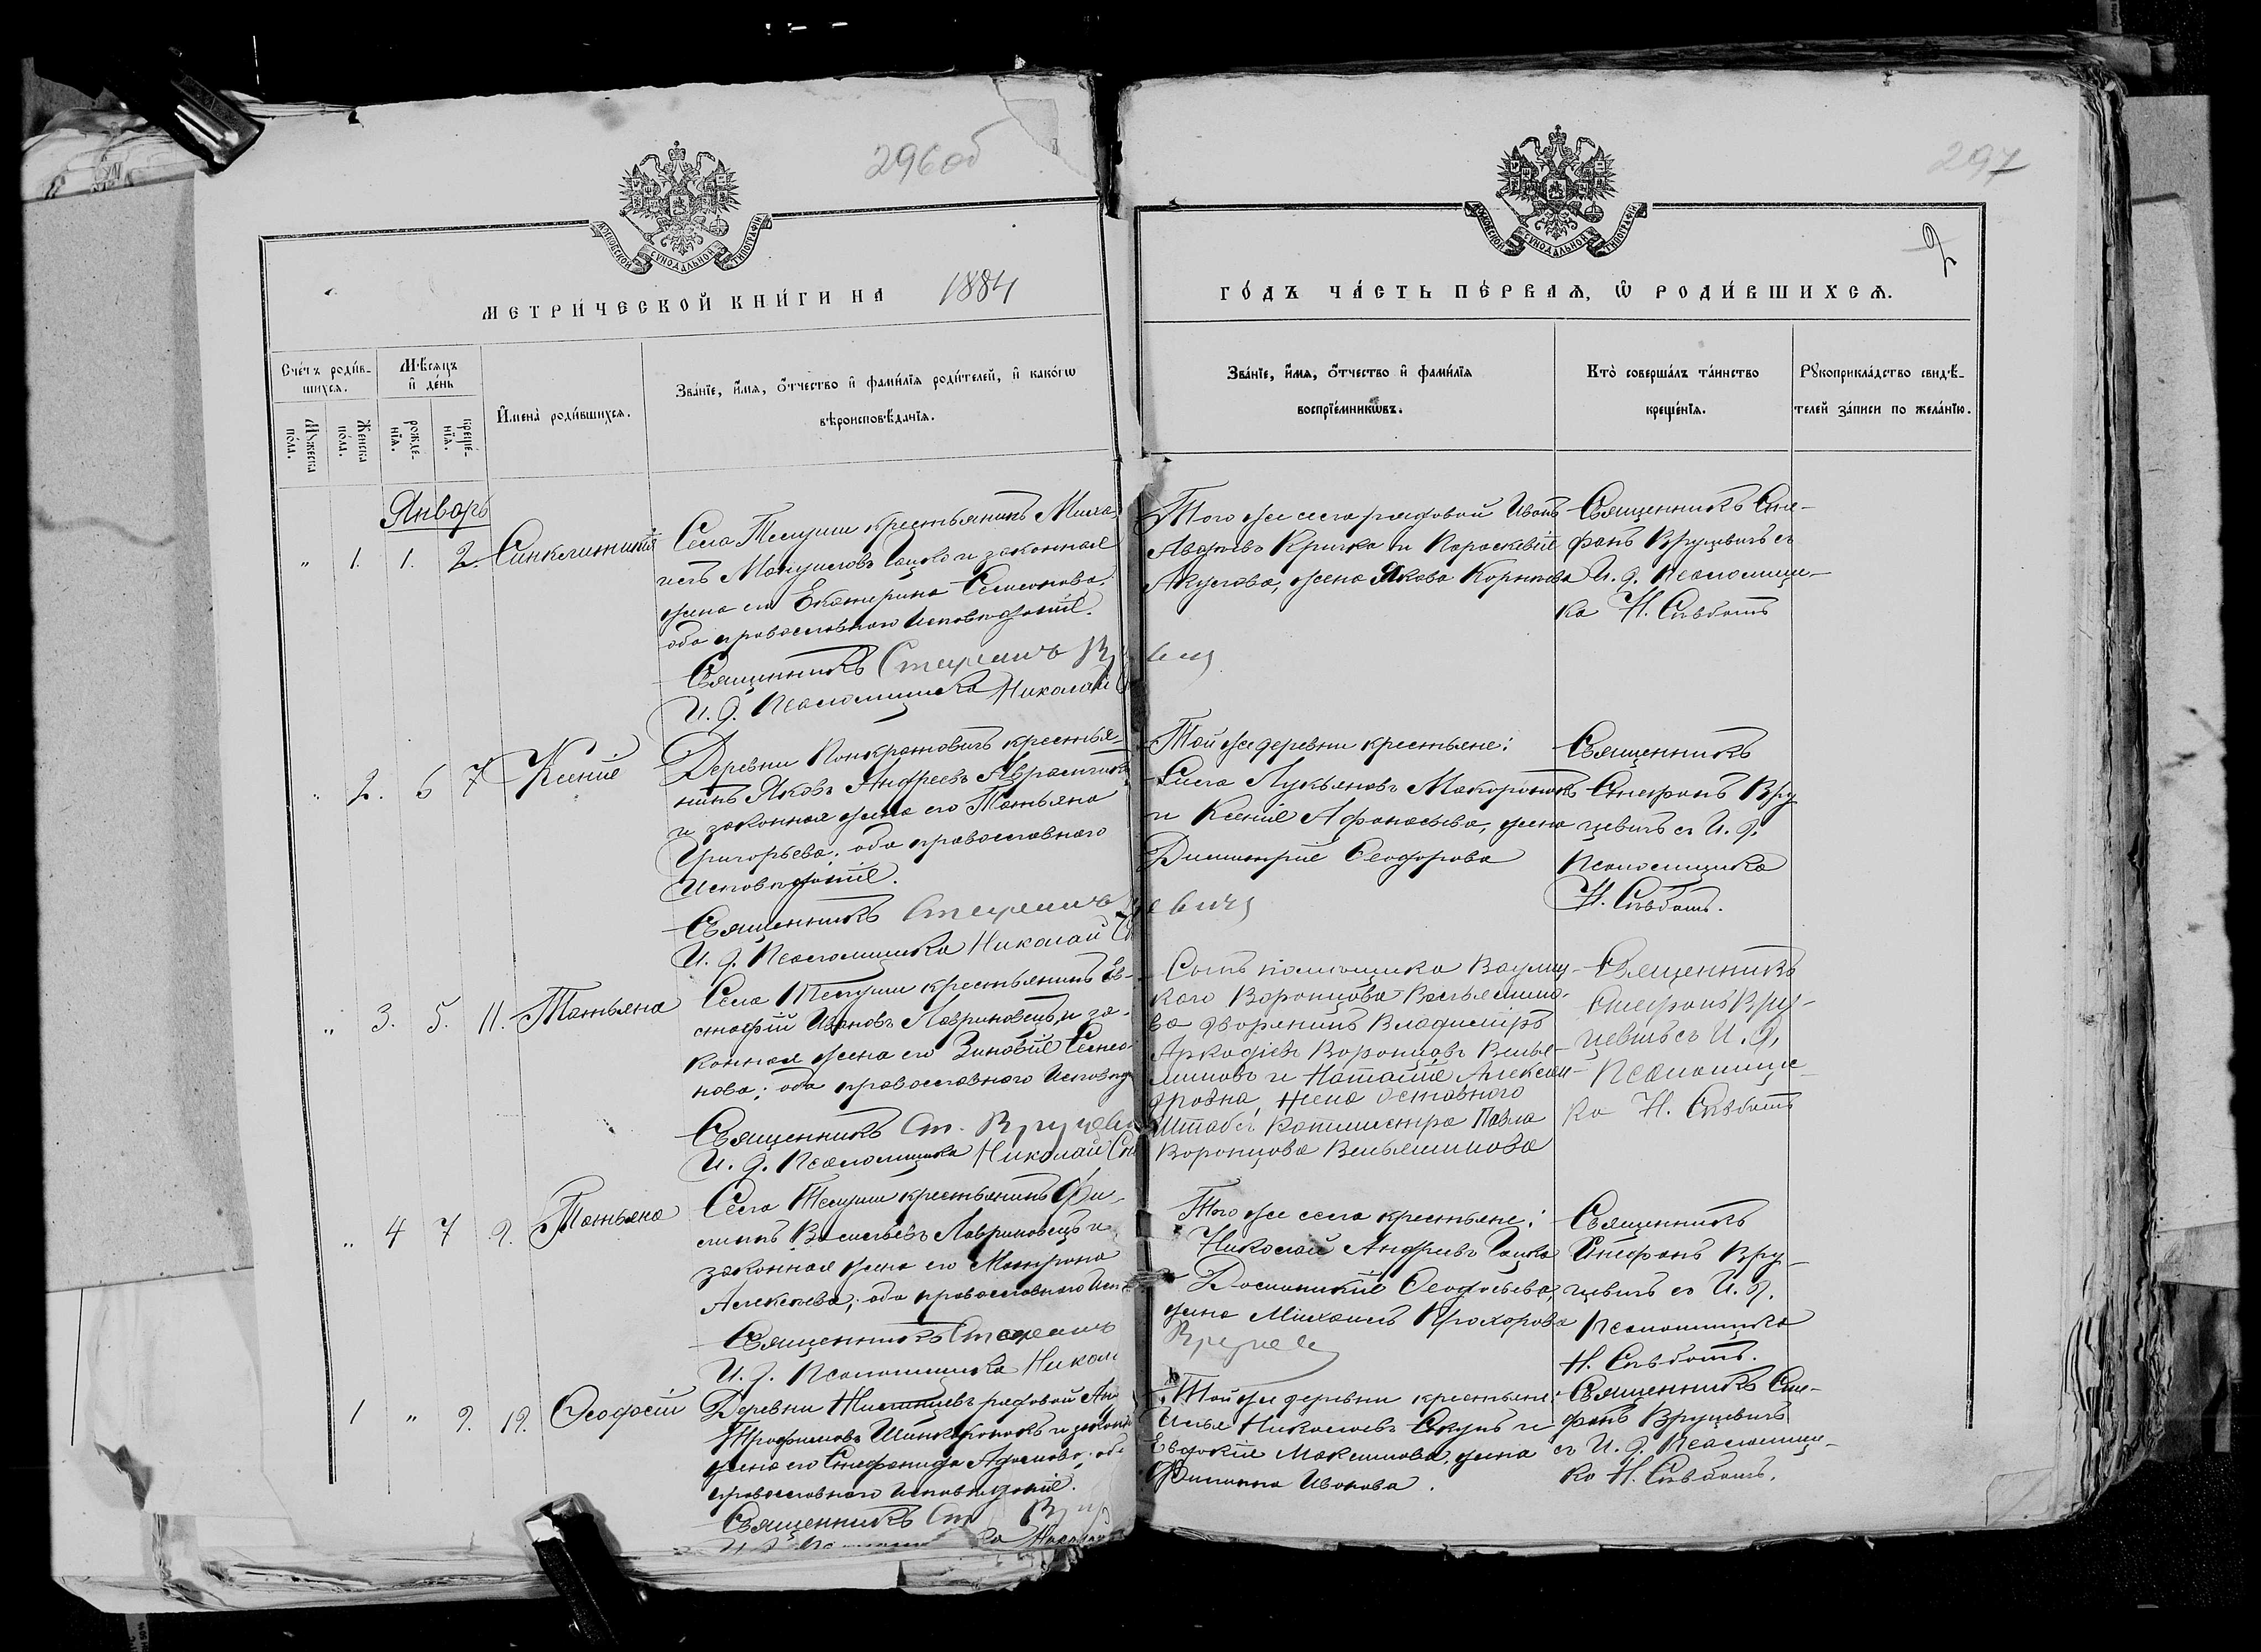 296 об
297
2
МОСКОВСКОЙ СѴНОДАЛЬНОЙ ТИПОГРАФІИ
МОСКОВСКОЙ СѴНОДАЛЬНОЙ ТИПОГРАФІИ
МЕТРИ́ЧЕСКОЙ КНИ́ГИ НА 1884
ГО́ДЪ ЧА́СТЬ ПЕ́РВАѦ, Ѿ РОДИ́ВШИХСѦ.
Сче́тъ роди́в-
шихсѧ.
Мꙋ́жеска
по́ла.
Же́нска
по́ла.
Мѣ́сѧцъ
и҆ де́нь
рожде́-
нїѧ.
креще́-
нїѧ.
И҆мена̀ роди́вшихсѧ.
Зва́нїе, и҆́мѧ, ѻ҆́тчество и҆ фами́лїѧ роди́телей, и҆ како́гѡ
вѣроисповѣ́данїѧ.
Зва́нїе, и҆́мѧ, ѻ҆́тчество и҆ фами́лїѧ
воспрїе́мникѡвъ.
Кто̀ соверша́лъ та́инство
креще́нїѧ.
Рꙋкоприкла́дство свидѣ́-
телей за́писи по жела́нїю.
Январь
" 1. 1. 2. Синклитикія
Села Телуши крестьянинъ Миха-
илъ Мануиловъ Гацко и законная
жена его Екатерина Семионова;
оба православнаго исповѣданія.
Священникъ Стефанъ
И. д. Псаломщика Николай
Того же села рядовой Иванъ
и Параскевія
Акулова, жена Якова Корнѣева
Священникъ Сте-
фанъ Вруцевичъ съ
И. д. Псаломщи-
ка Н.
" 2. 6 7 Ксенія
Деревни Панкратовичъ крестья-
нинъ Яковъ Андреевъ
и законная жена его Татьяна
Григорьева; оба православнаго
исповѣданія.
Священникъ Стефанъ
И. д. Псаломщика Николай
Той же деревни крестьяне:
Сила Лукьяновъ
и Ксенія Афанасьева, жена
Димитрія Ѳеодорова
Священникъ
Стефанъ Вру
цевичъ съ И. д.
Псаломщика
Н.
" 3. 5. 11. Татьяна
Села Телуши крестьянинъ Ев-
стафій Ивановъ Лавриновецъ и за-
конная жена его Зиновія Семио-
нова; оба православнаго исповѣд
Священникъ Ст. Вруцеви
И. д. Псаломщика Николай
Сынъ помѣщика
каго Воронцова Вельямино-
ва дворянинъ Владиміръ
Аркадіевъ Воронцовъ Велья-
миновъ и Наталія Алексан-
дровна, жена отставного
Штабсъ Ротмистра Павла
Воронцова Вельяминова
Священникъ
Стефанъ Вру-
цевичъ съ И. д.
Псаломщи-
ка Н.
" 4 7 9. Татьяна
Села Телуши крестьянинъ Фи-
липпъ Васильевъ Лавриновецъ и
законная жена его Матрона
Алексѣева; оба православнаго исп
Священникъ Стефанъ
И. д. Псаломщика Никол
Того же села крестьяне:
Николай Андреевъ Гацко
Домникія Ѳеодосьева,
жена Михаила Прохорова
Священникъ
Стефанъ Вру-
цевичъ съ И. д.
Псаломщика
Н.
1 " 9. 19. Ѳеодосій
Деревни рядовой
Трофимовъ и законн
жена его Стефанида Адамова; оба
православнаго исповѣданія.
Священникъ Ст
Той же деревни крестьяне:
Илья Николаевъ и
Евдокія Максимова, жена
Филиппа Иванова.
Священникъ Сте-
фанъ Вруцевичъ
съ И. д. Псаломщи-
ка Н.